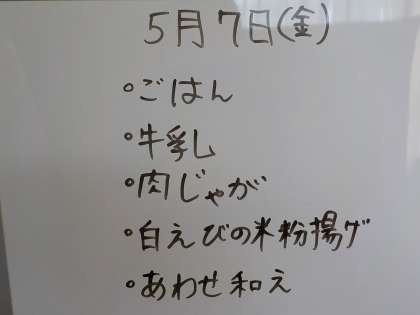 5月7日(金)
・ごはん
・牛乳
・肉じゃが
・白えびの米粉揚げ
・あわせ和え